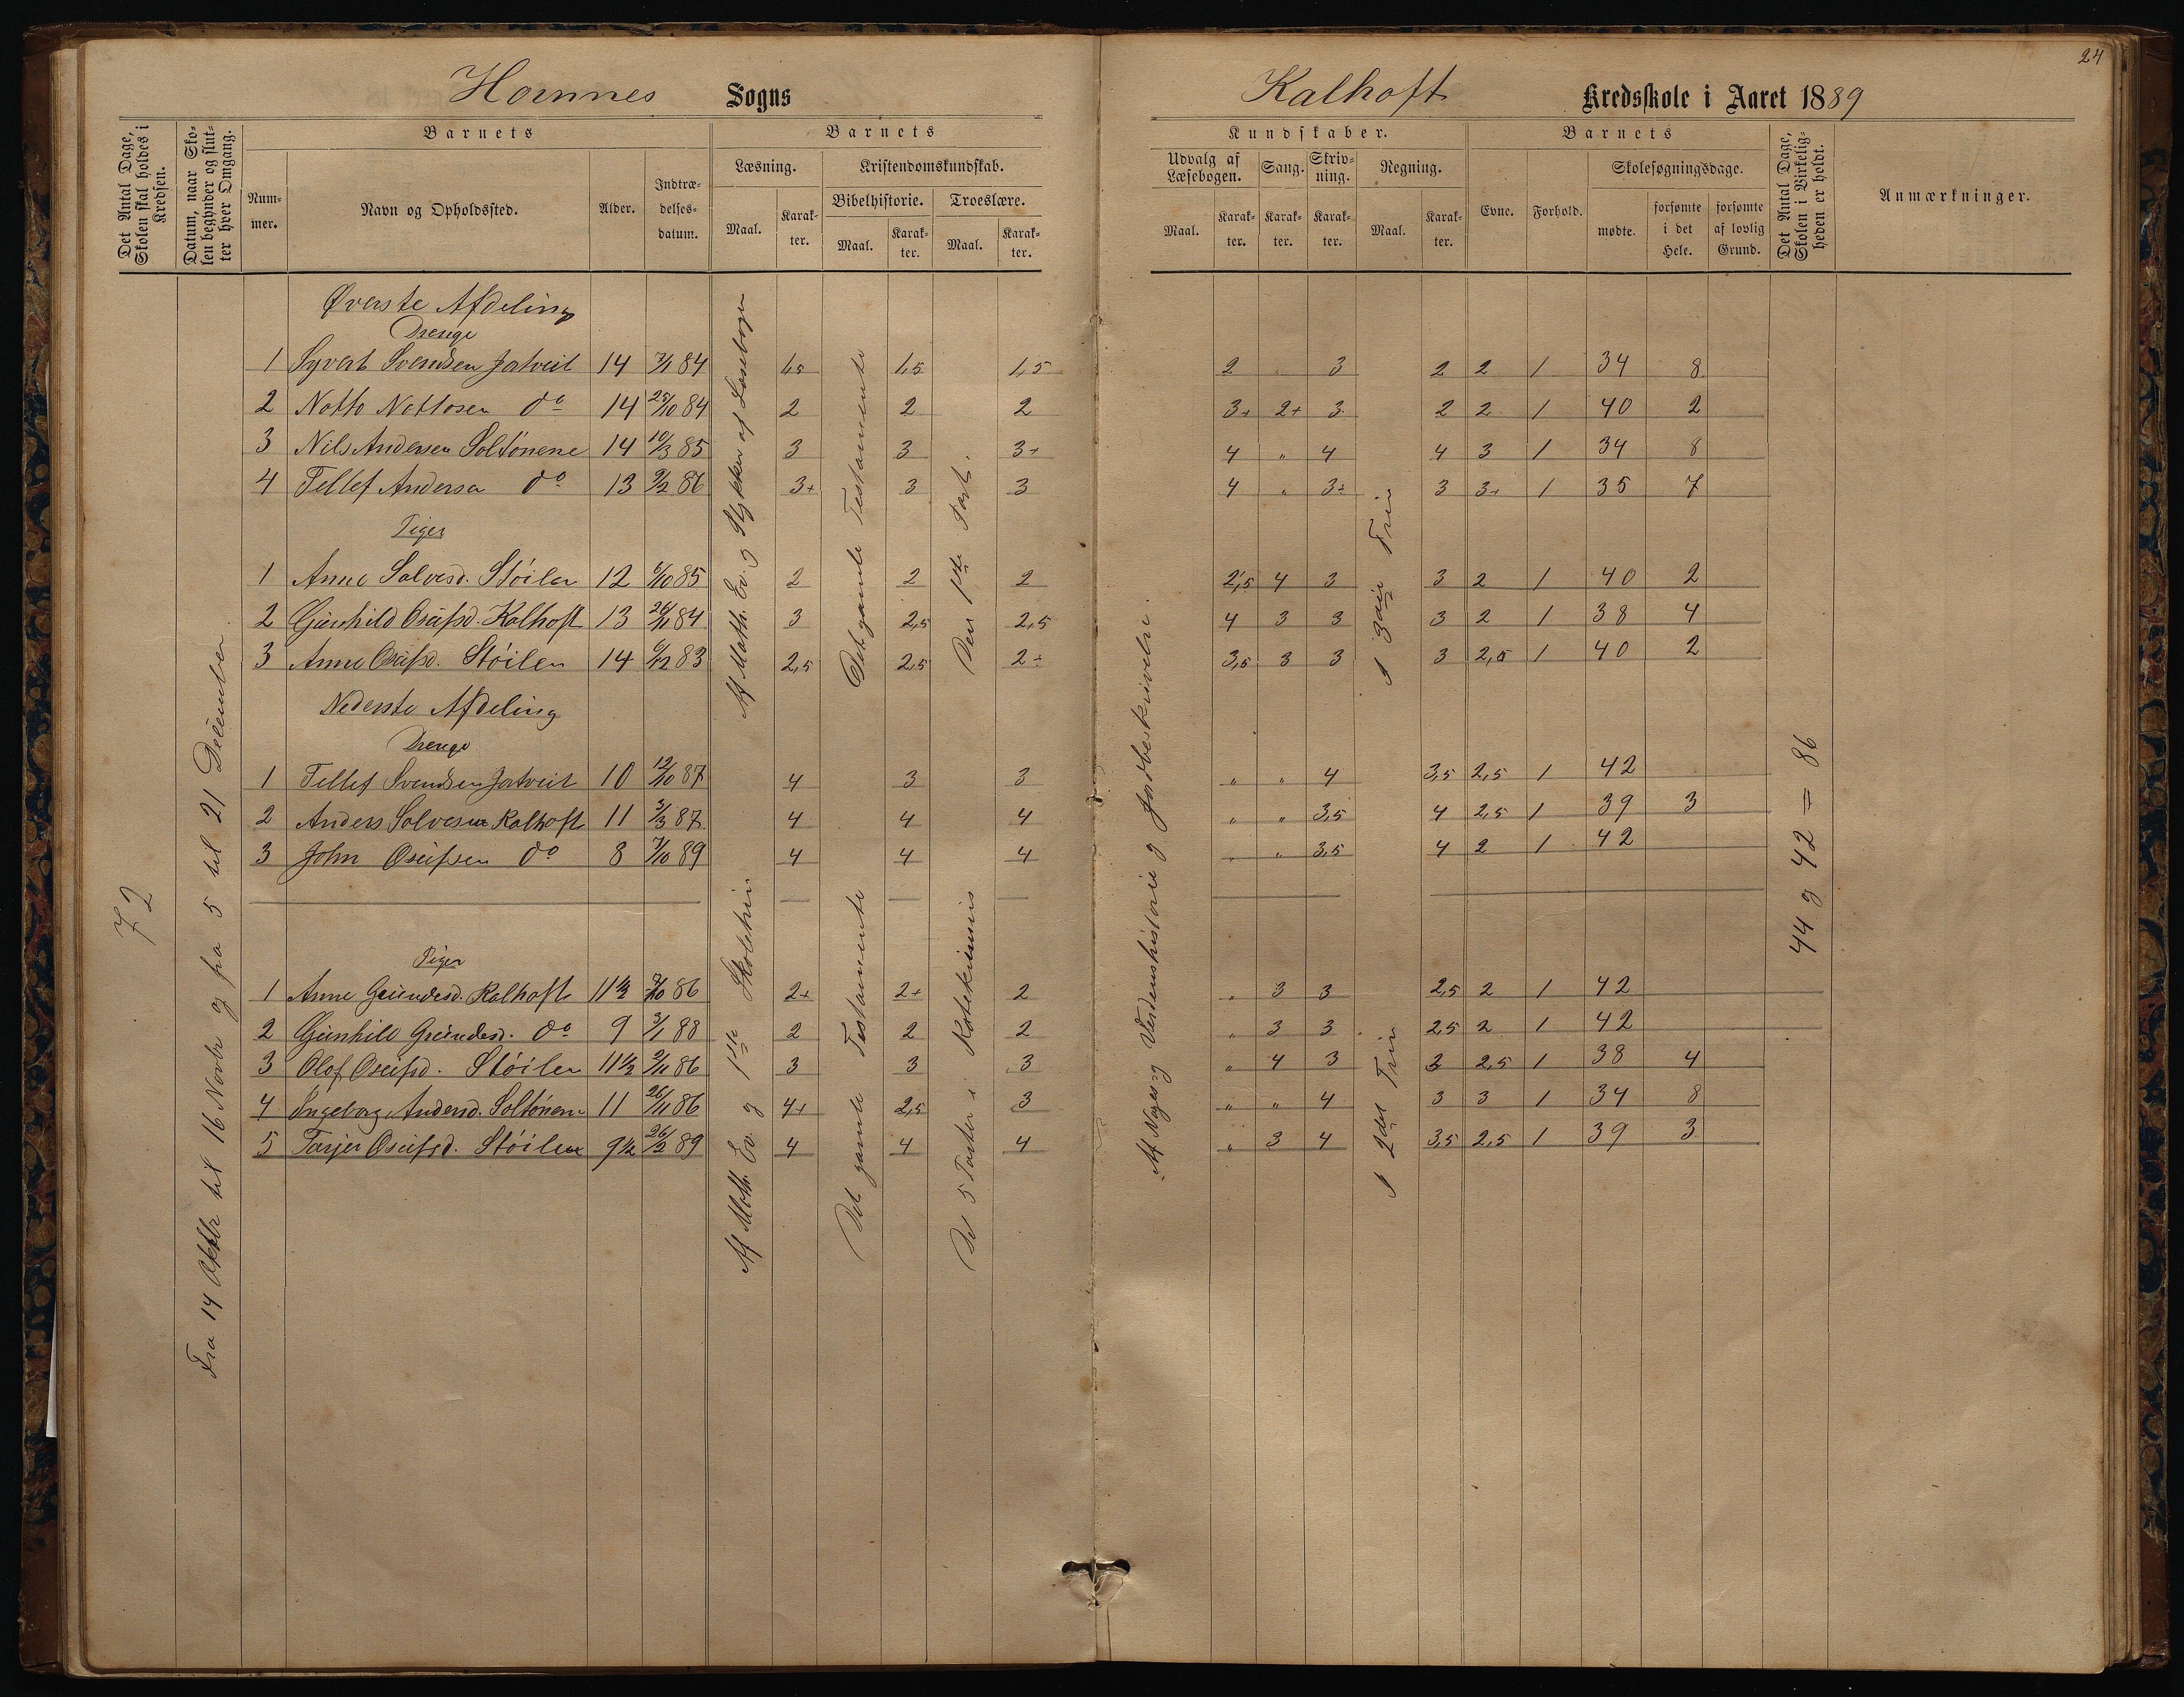 24
Hornnes Sogns
Kalhoft Kredsskole i Aaret 1889
Det Antal Dage, Skolen skal holdes i Kredsen.
Datum, naar Skolen begynder og slutter hver Omgang.
Barnets
Nummer.
Navn og Opholdssted.
Alder.
Indtrædelsesdatum.
Barnets
Læsning.
Maal.
Karakter.
Kristendomskundskab.
Bibelhistorie.
Maal.
Karakter.
Troeslære.
Maal.
Karakter.
Kundskaber.
Udvalg af Læsebogen.
Maal.
Karakter.
Sang.
Karakter.
Skrivning.
Karakter.
Regning.
Maal.
Karakter.
Barnets
Evne.
Forhold.
Skolesøgningsdage.
mødte.
forsømte i det Hele.
forsømte af lovlig Grund.
Det Antal Dage, Skolen i Virkeligheden er holdt.
Anmærkninger.
72
Fra 14 Oktbr til 16 Novbr og fra 5 til 21 December
Af Math. Ev. og Stykker af Læsebogen
Det gamle Testamente
Den 1ste Part.
Af Norges og Verdenshistorie og Jordbeskrivelse.
I 3die Trin
44 og 42 = 86
Øverste Afdeling
Drenge
1 Syvert Svendsen Jatveit 14 7/1 84 1,5 1,5 1,5 2 " 3 2 2 1 34 8
2 Notto Nottosen do 14 25/10 84 2 2 2 3+ 2+ 3 2 2 1 40 2
3 Nils Andersen Soltónene 14 10/3 85 3 3 3÷ 4 " 4 4 3 1 34 8
4 Tellef Andersen do 13 9/2 86 3+ 3 3 4 " 3÷ 3 3+ 1 35 7
Piger
1 Anne Salvesd. Stóilen 12 6/10 85 2 2 2 2,5 4 3 3 2 1 40 2
2 Gunhild Osufsd. Kalhoft 13 26/11 84 3 2,5 2,5 4 3 3 3 2 1 38 4
3 Anne Osufsd. Stóilen 14 6/12 83 2,5 2,5 2÷ 3,5 3 3 3 2,5 1 40 2
Nederste Afdeling
Drenge
1 Tellef Svendsen Jatveit 10 12/10 87 4 3 3 " " 4 3,5 2,5 1 42
2 Anders Salvesen Kalhoft 11 3/3 87 4 4 4 " " 3,5 4 2,5 1 39 3
3 John Osufsen do 8 7/10 89 4 4 4 " " 3,5 4 2 1 42
Af Math. Ev. og 1ste Skoletrin
Det gamle Testamente
Det 5 Parter i Katekismus
I 2det Trin
Piger
1 Anne Gundesd. Kalhoft 11 1/2 7/10 86 2+ 2+ 2 " 3 3 2,5 2 1 42
2 Gunhild Gundesd. do 9 3/1 88 2 2 2 " 3 3 2,5 2 1 42
3 Olof Osufsd. Stóilen 11 1/2 9/11 86 3 3 3 " 4 3 3 2,5 1 38 4
4 Ingeborg Andersd. Soltónene 11 26/11 86 4+ 2,5 3 " " 4 3 3 1 34 8
5 Tarjer Osufsd. Stóilen 9 1/2 26/2 89 4 4 4 " 3 4 3,5 2,5 1 39 3